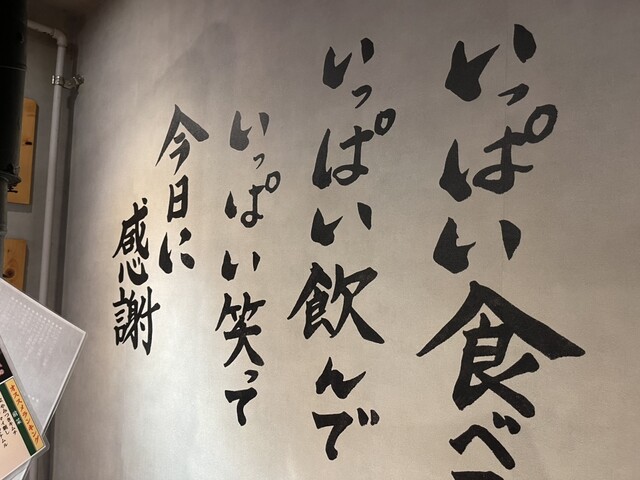 いっぱい食べ
いっぱい飲んで
いっぱい笑って
今日に
感謝